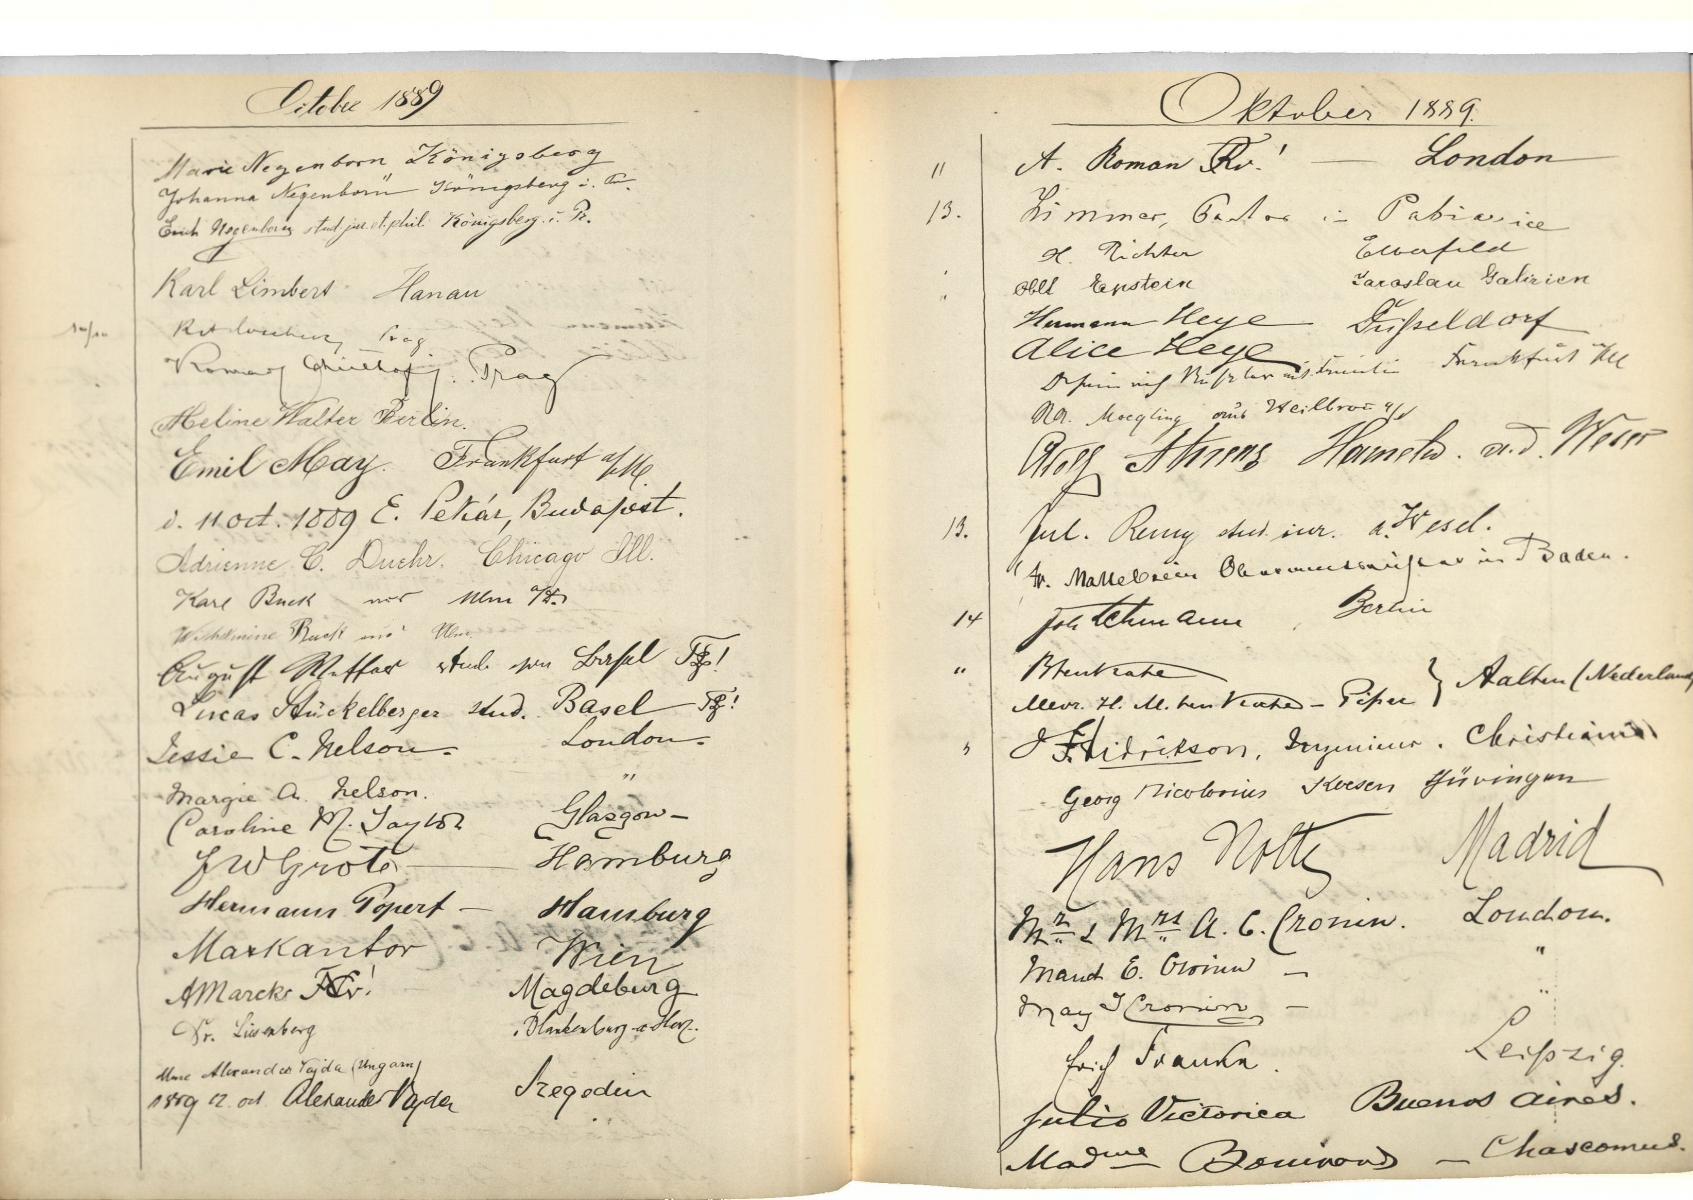 October 1889
Marie Negenborn Königsberg
Johanna Negenborn Königsberg i. Pr.
Erich Negenborn stud. jur. et. phil. Königsberg i. Pr.
Karl Limbert Hanau
Prag
Prag
Meline Walter Berlin.
Emil May. Frankfurt a/M.
d. 11 oct. 1889 E. Pekár, Budapest.
Adrienne C. Duehr. Chicago Ill.
Karl Buck Ulm a/D.
Wilhelmine Buck Ulm
August stud. Basel
Lucas Stückelberger stud. Basel
Jessie C. Nelson London
Margie A. Nelson. "
Caroline M. Taylor Glasgow
J W Grote Hamburg
Hermann Popert Hamburg
Markantor Wien
A Marcks Magdeburg
Dr. Blankenburg a. Harz.
Mme Alexander Vajda (Ungarn)
1889 12. oct. Alexander Vajda Szegedin
Oktober 1889.
" A. Roman London
13. Zimmer, Pastor in Pabianice
H. Richter Elberfeld
" Oblt Epstein Jaroslau Galizien
Hermann Heye Düsseldorf
Alice Heye
Frankfurt a/M
Moegling aus Heilbronn a/N
Adolf Ahrens Hameln a. d. Weser
13. Jul. Remy stud. iur. a. Wesel.
in Baden.
14 Joh Lehmann Berlin
" B ten Kate
Mevr. H. M. ten Kate - Piper } Aalten (Nederland)
" J Fridrikson, Ingenieur. Christiania
Georg Nicolovius Thüringen
Hans Nolte Madrid
Mr & Mrs A. C. Cronin. London.
Maud E. Cronin "
May J Cronin "
Erich Franke. Leipzig.
Julio Victorica Buenos Aires.
Madme Chascomus.